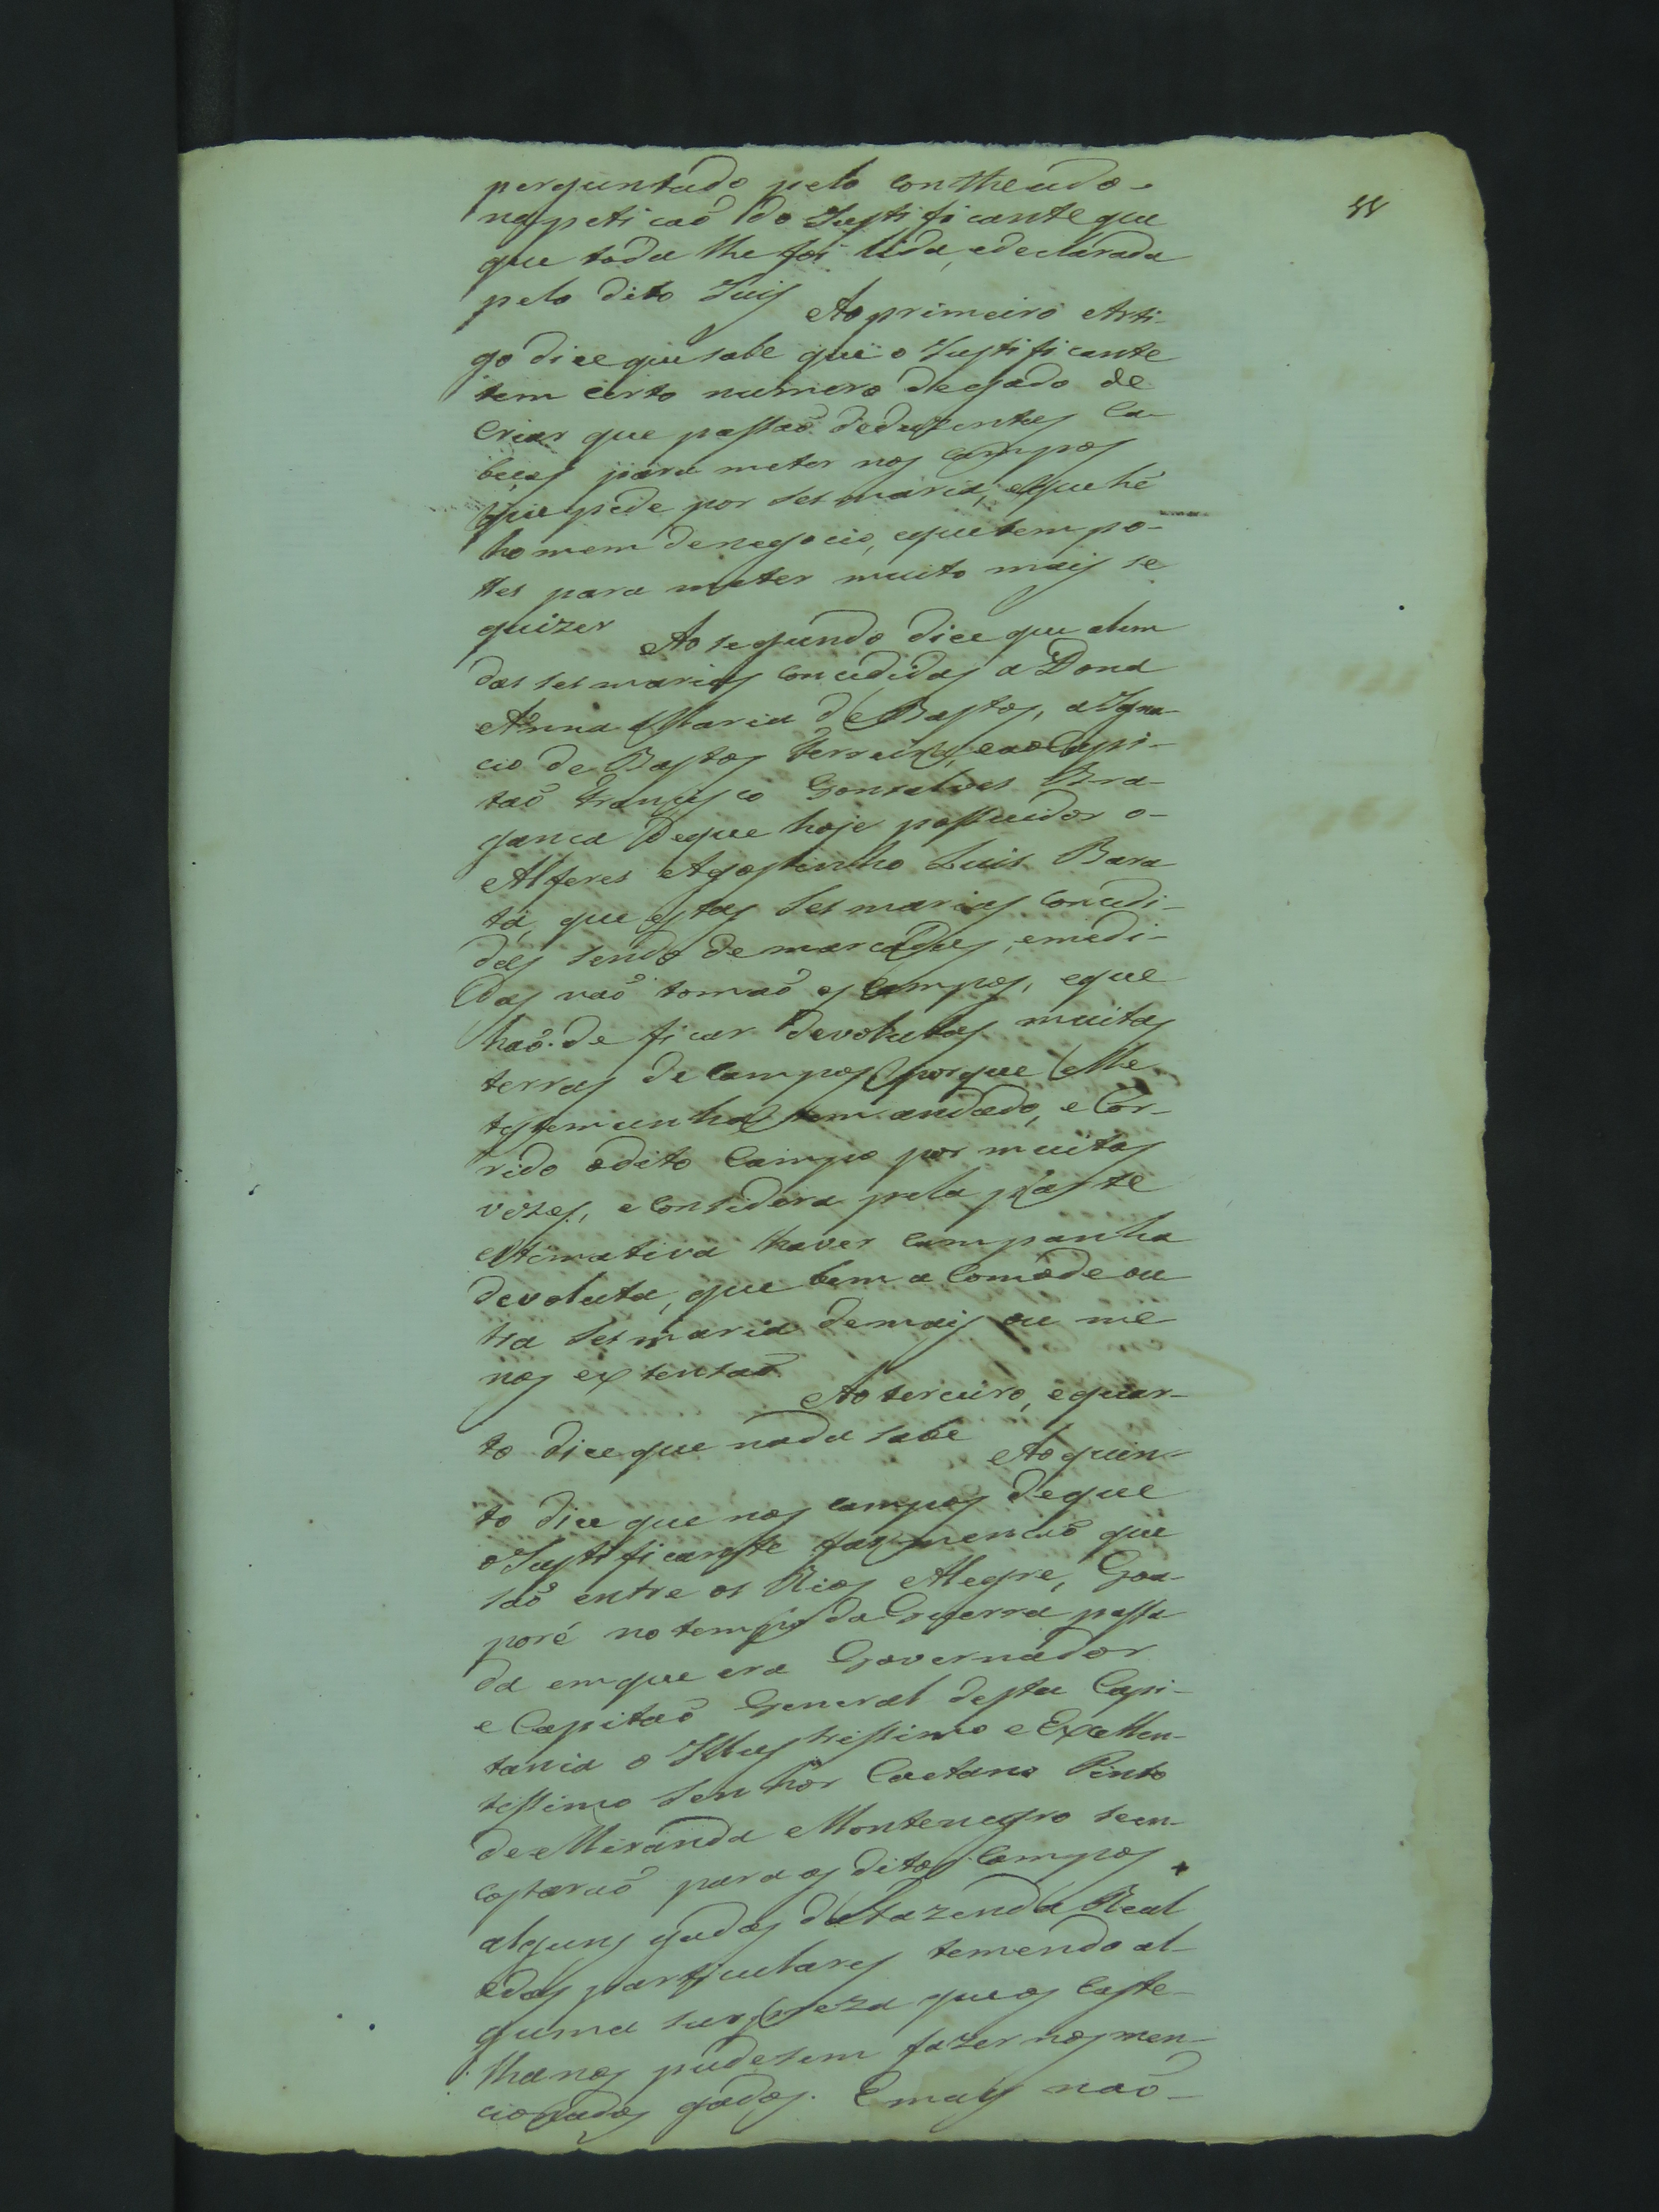 55
perguntado pelo contheudo
na peticaõ do Justificante que
que toda lhe foi lida, e declarada
pelo dito Juis Ao primeiro Arti-
go dice que sabe que o Justificante
tem certo numero de gado de
Criar que passaõ de duzentas Ca-
becas para meter nos campos
que pede por sesmaria, e que hé
homem de negocio, e que tem po-
ses para meter muito mais se
quizer Ao segundo dice que alem
das sesmarias concedidas a Dona
Anna Maria de Bastos, a Igna-
cio de Bastos Ferreira, e ao Capi-
taõ Francisco Gonsalves Bra-
ganca de que hoje possuidor o
Alferes Agostinho Luis Bara
ta, que estas sesmarias concedi-
das sendo demarcadas, e medi-
das naõ tomaõ os campos, e que
haõ de ficar devolutas muitas
terras de campos porque elle
testemunha tem andado, e Cor-
rido o dito Campo por muitas
vezes, e considera pela p'arte
estimativa haver campanha
devoluta, que bem acomode ou
tra sesmaria de mais ou me
nos extensaõ Ao terceiro, e quar-
to dice que nada sabe Ao quin-
to dice que nos campos de que
o Justificante faz mencaõ que
saõ entre os Rios Alegre, Goa-
poré no tempo da Guerra passa
da em que era Governador
e Capitaõ General desta Capi-
tania o Illustrissimo e Excellen-
tissimo Senhor Caetano Pinto
de Miranda Montenegro se en-
costaraõ para os ditos Campos
alguns gados da Fazenda Real
e dos particulares temendo al-
guma surpreza que os Caste-
lhanos pudesem fazer nos men-
cionados gados. E mais naõ